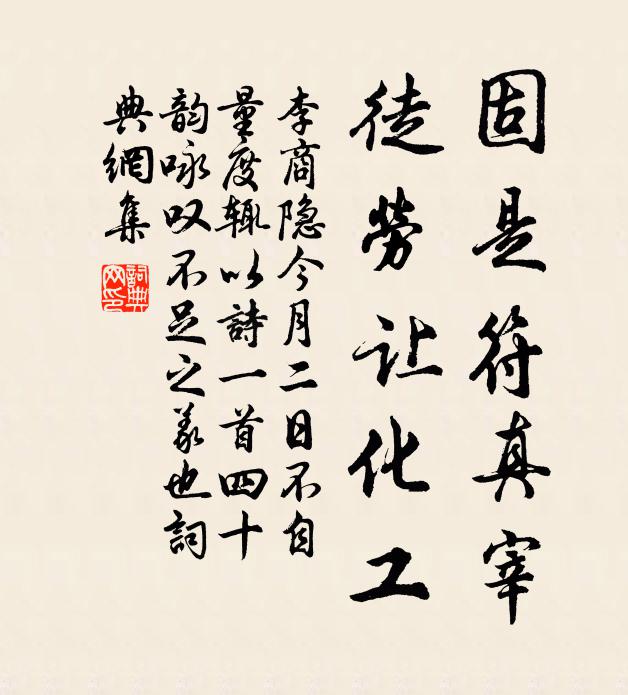 固是符真宰
徒劳让化工
李商隐今月二日不自
量度辄以詩一首四十
韵咏叹不足之义也詞
典網集
詞典
网印